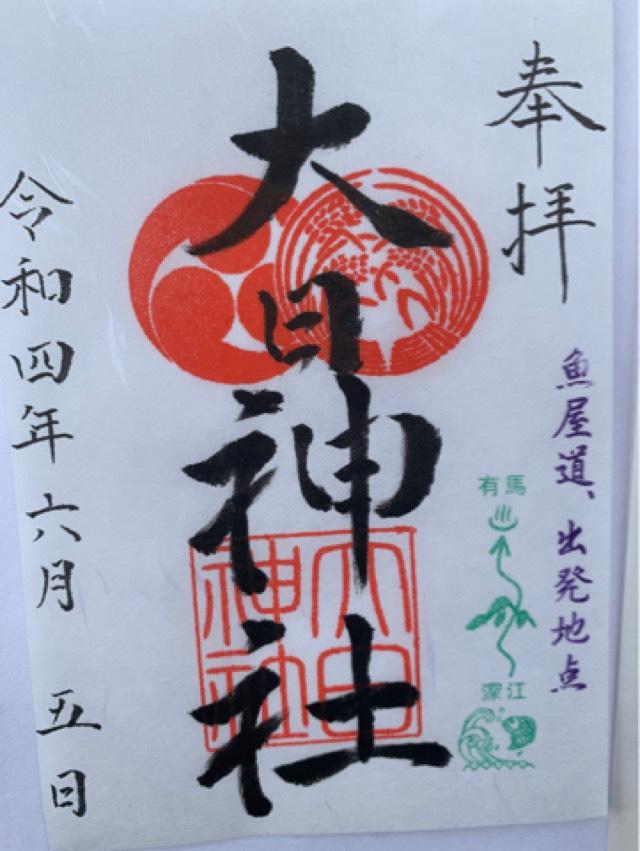 奉拝
魚屋道、出発地点
有馬
深江
大日神社
大日神社
令和四年六月 五日